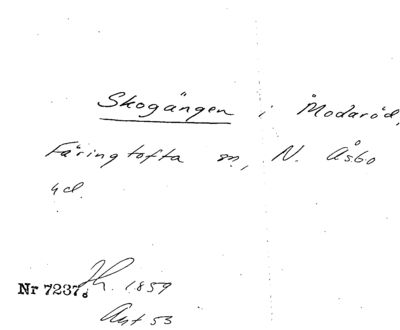 Skogången i Åmodaröd,
Färingtofta sn, N. Åsbo
hd.
Nr 7237. 1859
Ant 53